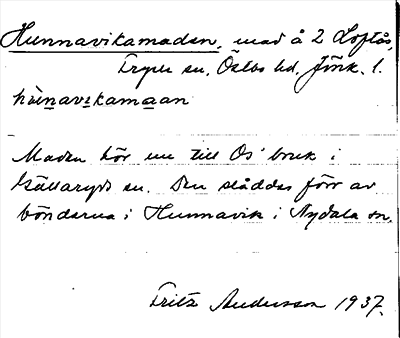 Hunnavikamaden, mad å 2 Loftås,
Fryele sn, Östbo hd, Jönk. l.
hùnavikamaan
Maden hör nu till Os bruk i
Källeryds sn. Den slåddes förr av
bönderna i Hunnavik i Nydala sn.
Fritz Andersson 1937.